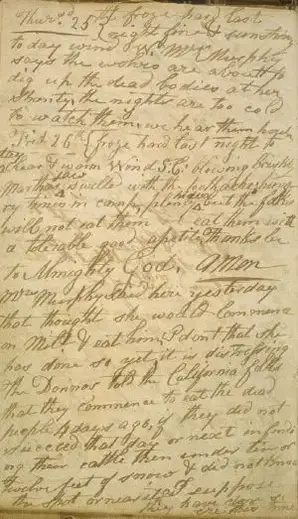 Thursd. 25th froze hard last
night fine & sunshiny
to day wind W. Mrs Murphy
says the wolves are about to
dig up the dead bodies at her
Shanty, the nights are too cold
to watch them, we hear them howl
Frid 26th froze hard last night to
day clear & warm Wind S.E. blowing briskly
Marthas jaw swelled with the toothache; hung
ry times in camp, plenty hides but the folks
will not eat them we eat them with
a tolerable good apetite. Thanks be
to Almighty God. Amen
Mrs Murphy said here yesterday
that thought she would commence
on Milt. & eat him. I dont that she
has done so yet, it is distressing
The Donnos told the California folks
that they commence to eat the dead
people 4 days ago, if they did not
succeed that day or next in find
ing their cattle then under ten or
twelve feet of snow & did not know
the spot or near it, I suppose
They have done
so ere this time